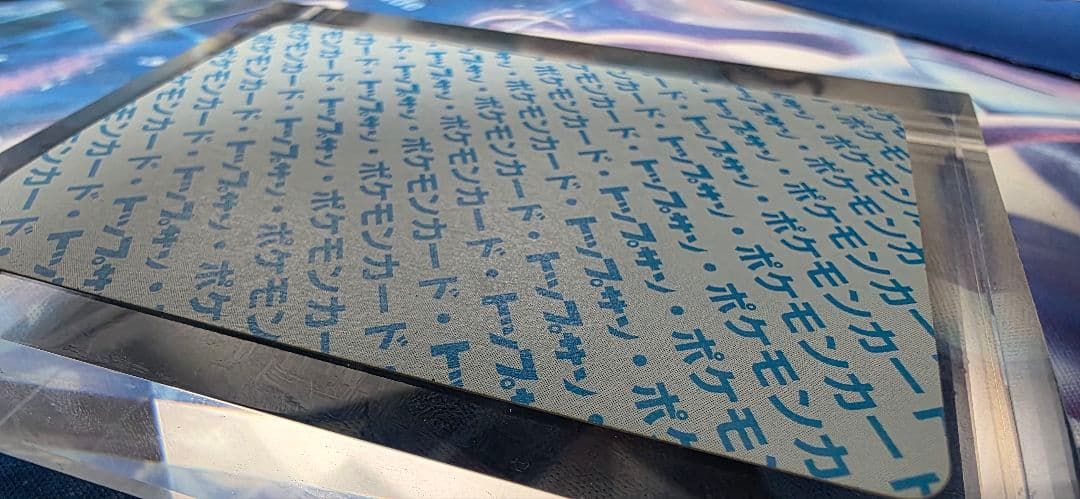 ポケモンカード
・ポケモンカード
トップサン・ポケモンカ
ド・トップサン・ポケモ
カード・トップサン・ポ
モンカード・トップサン・
・ポケモンカード・トップサ
トップサン・ポケモンカード・トッ
ード・トップサン・ポケモンカード
カード・トップサン・ポケモンカー
ポケモンカード・トップサン・ポケモン
ケモンカード・トップサン・ポケ
モンカード・トップサン・
ンカード・トップサ
カード・